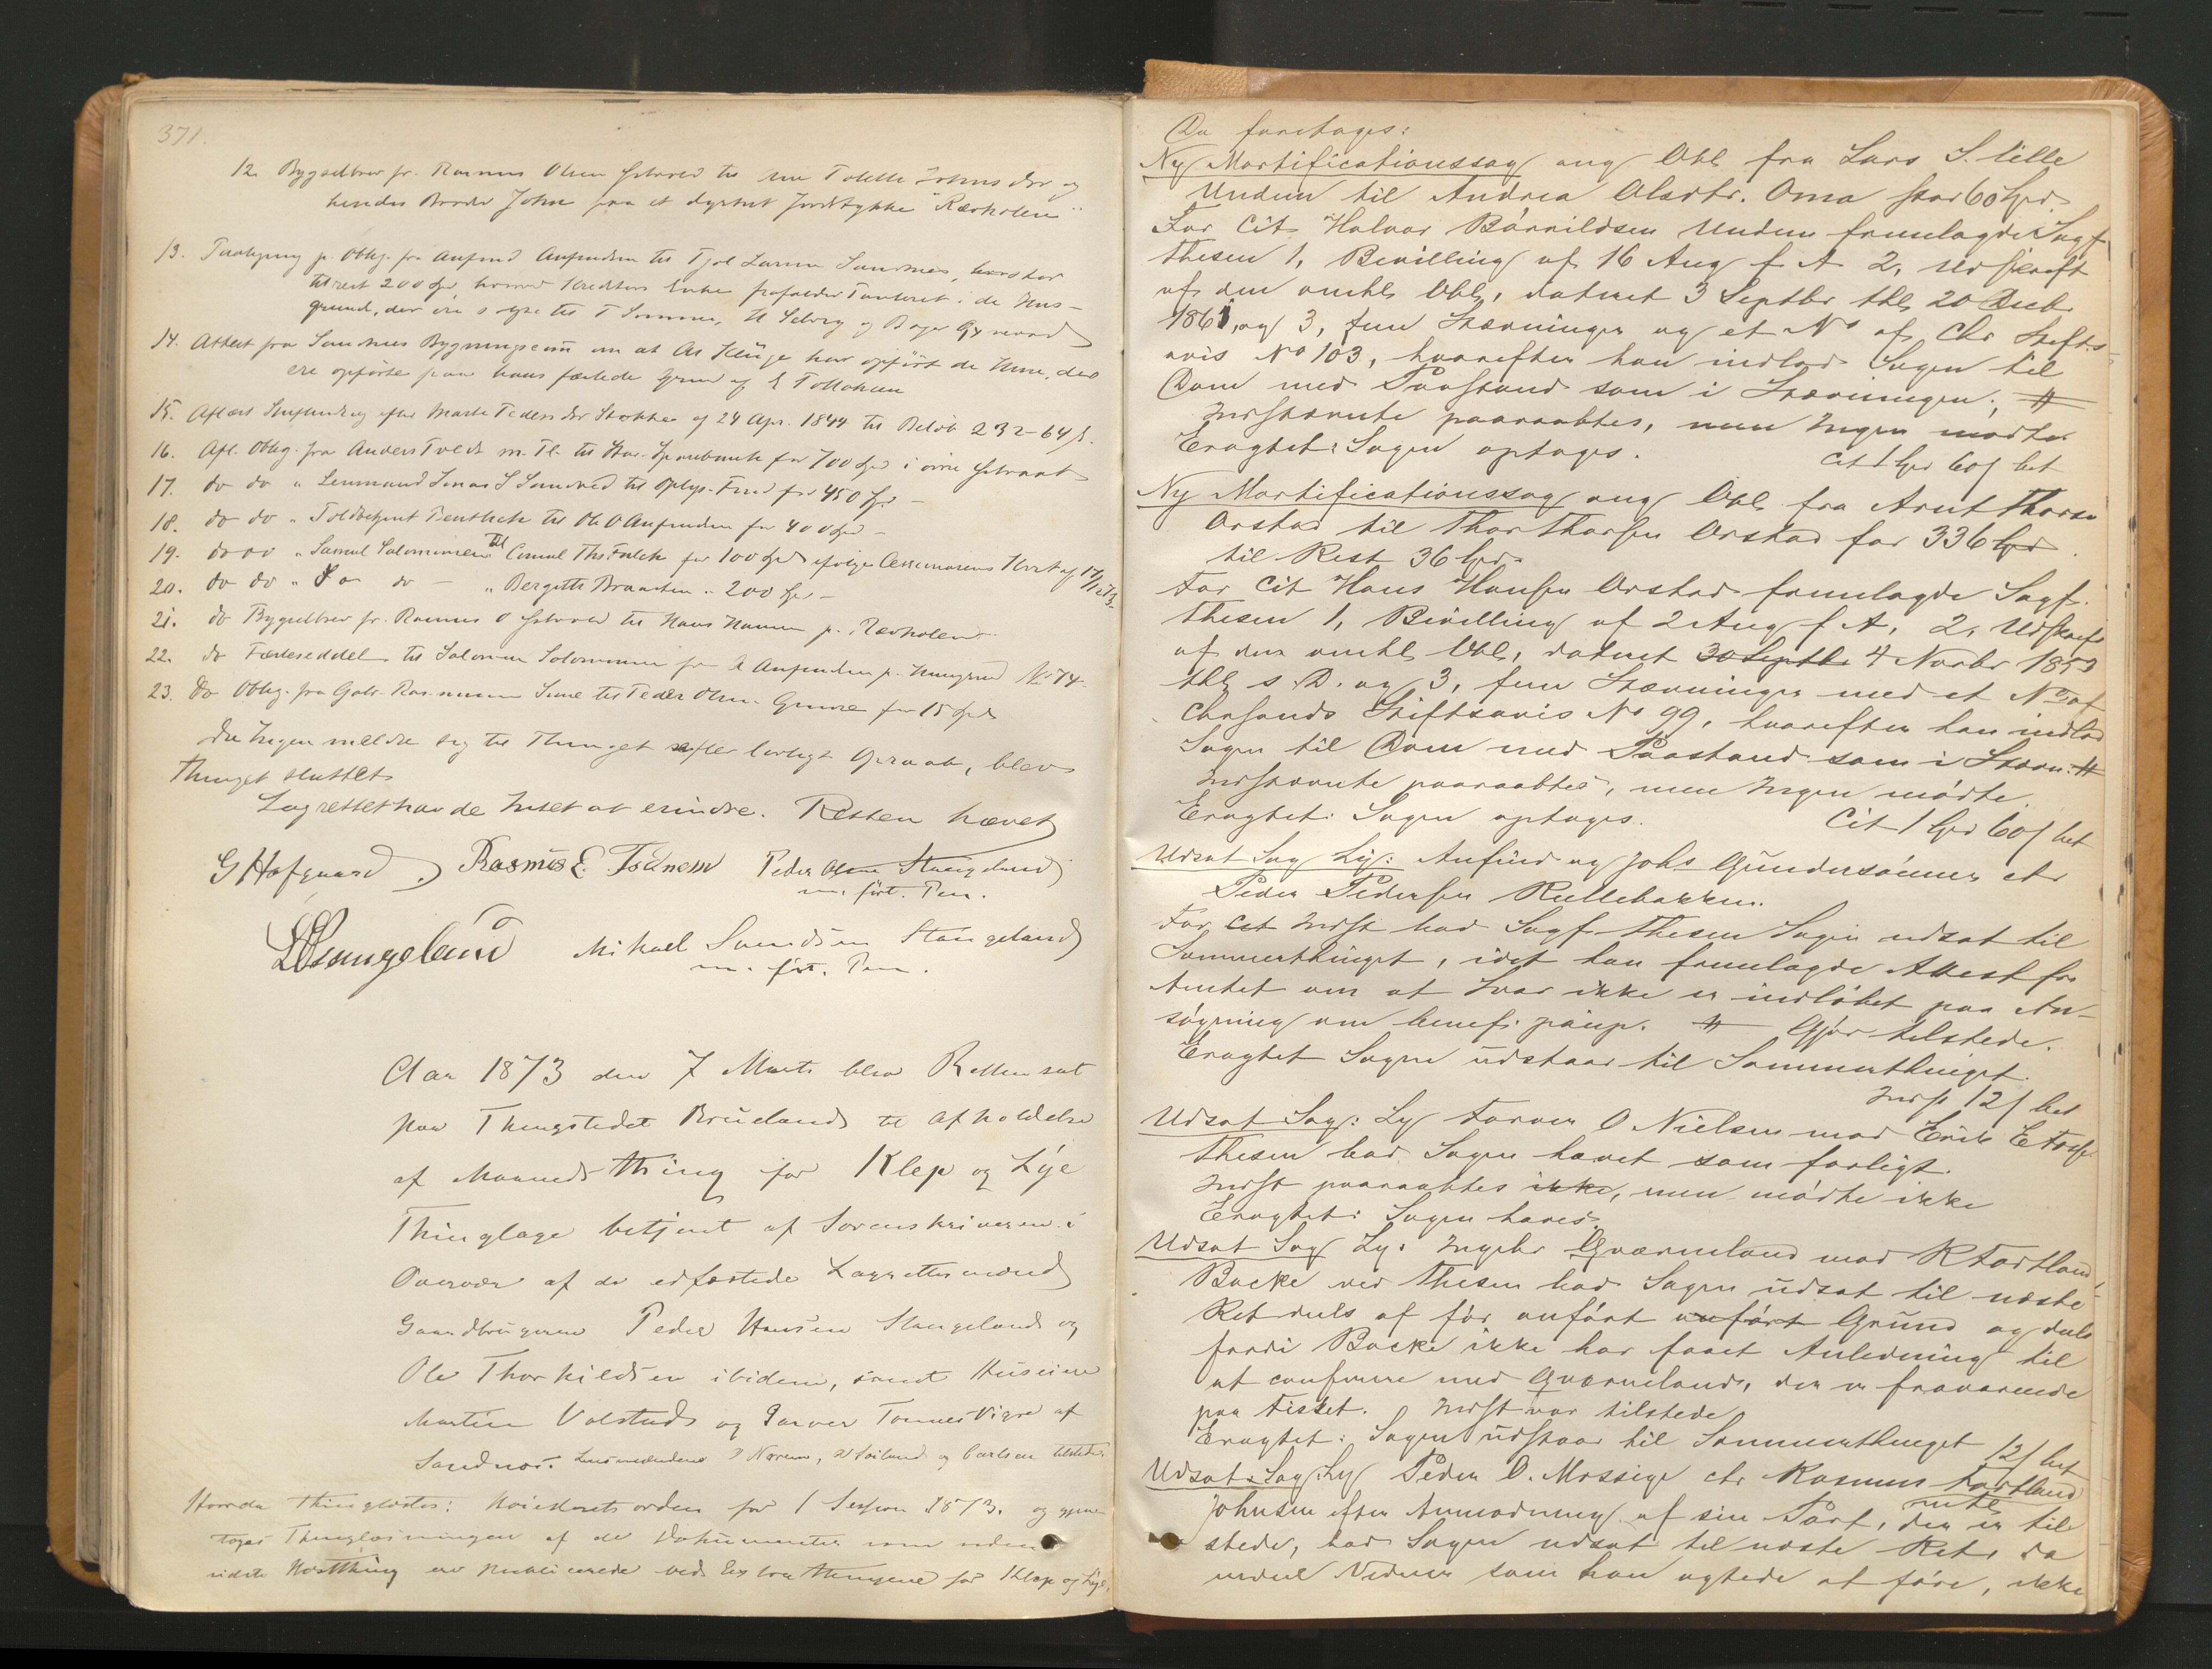 371.
12. Bygselbrev fr. Rasmus Olsen til Tolette Johnsdtr og
hendes Broder John paa et dyrket Jordstykke "Rævholen"
13. p. Oblig. fra Anfind Anfindsen til Tjøl Larsen Sandnes, hvorefter
200 Spd, hvorved Kreditors Enke frafalder Panteret i de Huse
grund, der ere solgte til T Sømme, og
14. Attest fra Sandnes Bygningscom om at As Kluge har opført de Huse, der
ere opførte paa hans fæstede Grund af
15. Aflæst efter Marte Pedersdtr Stokke af 24 Apr. 1844 til Beløb 232-64 s.
16. Afl. Oblig. fra Anders Tvedt m. Fl. til Stav. Sparebank for 700 Spd i
17. do do " Lensmand Jonas S Sandved til Oplys. Fond for 450 Spd -
18. do do " Toldbetjent Bentseh til Ole O Anfindsen for 400 Spd -
19. do do " Samuel Salomonsen til Consul Ths Falck for 100 Spd
20. do do " do do - " Bergitte Braasten " 200 Spd -
21. do Bygselbrev fr. Rasmus O til Hans Hansen p. Rævholen
22. do Fæsteseddel til Salomon Salomonsen fra A Anfindsen p. Husgrund No 74.
23. Do Oblig. fra Gabr. Rasmussen Sune til Peder Olsen Gimre for 15 Spd
Da Ingen meldte sig til Thinget efter lovligt Opraab, blev
Thinget sluttet
Lagrettet havde Intet at erindre. Retten hævet
G Hofgaard Rasmus E. Tsdnem Peder Olsen Stangeland
m. ført. Pen.
Stangeland Mikael Svendsen Stangeland
m. ført. Pen.
Aar 1873 den 7 Marts blev Retten sat
paa Thingstedet Brueland til Afholdelse
af Maanedsthing for Klep og Lye
Thinglage betjent af Sorenskriveren i
Overvær af de edfæstede Lagrettesmænd
Gaardbrugerne Peder Hansen Stangeland og
Ole Thorkildsen ibidem, samt Huseier
Martin Volstad og Garver Tønnes Vigre af
Sandnæs. Lensmændene Nærem, Soiland og Carlsen tilstede
Hvorda thinglæstes: Høiesteretsorden for 1 Session 1873. og
toges Thinglæsningen af de Dokumenter som siden
sidste Høstthing ere publicerede ved Extrathingene for Klep og Lye.
Da foretages:
Ny Mortificationssag ang Obl fra Lars S. lille
Undem til Andrea Olsdtr. Oma stor 60 Spd.
For Cit. Halvor Bårnildsen Undem fremlagde Sagf.
Thesen 1, Bevilling af 16 Aug f A 2, Udskrift
af den omhl Obl, dateret 3 Septbr thl 20 Decbr
1861, og 3, fem Stævninger og et No af Chr Stifts-
avis No 103, hvorefter han indlod Sagen til
Dom med Paastand som i Stævningen;
Indstævnte paaraabtes, men Ingen mødte
Eragtet: Sagen optages.
Cit 1 Spd 60 s bet
Ny Mortificationssag ang Obl fra Arnt Thorsn
Orstad til Thor Thorsen Orstad for 336 Spd
til Rest 36 Spd.
For Cit Hans Hansen Orstad fremlagde Sagf.
Thesen 1, Bevilling af 2 Aug f A, 2, Udskrift
af den omhl Obl, dateret 30 Septbr 4 Novbr 1853
thl s. D. og 3, fem Stævninger med et No af
Chrsands Stiftsavis No 99, hvorefter han indlod
Sagen til Dom med Paastand som i Stævn:
Indstævnte paaraabtes, men Ingen mødte.
Eragtet: Sagen optages.
Cit 1 Spd 60 s bet
Udsat Sag Ly: Anfind og Johs Gundersønner ctr
Peder Pedersen Rullebakken.
For Cit Indst bad Sagf. Thesen Sagen udsat til
Sommerthinget, idet han fremlagde Attest fra
Amtet om at Svar ikke er indløbet paa An-
søgning om benef: paup. Gjør tilstede.
Eragtet Sagen udstaar til Sommerthinget.
Indst 12 s bet
Udsat Sag: Ly Farver O Nielsen mod Erik E
Thesen bad Sagen hævet som forligt.
Indst paaraabtes ikke, men mødte ikke
Eragtet: Sagen hæves
Udsat Sag Ly: Ingebr Qværneland mod R Fortland
Backe ved Thesen bad Sagen udsat til næste
Ret dels af før anført anført Grund og dels
fordi Backe ikke har faaet Anledning til
at conferere med Qværneland, der er fraværende
paa Fisket. Indst var tilstede
Eragtet: Sagen udstaar til Sommerthinget 12 s bet
Udsat Sag: Ly Peder O. Mossige ctr Rasmus Fortland
Johnsen efter Anmodning af sin Part, der er til
stede, bad Sagen udsat til næste Ret, da
endeel Vidner som han agtede at føre, ikke